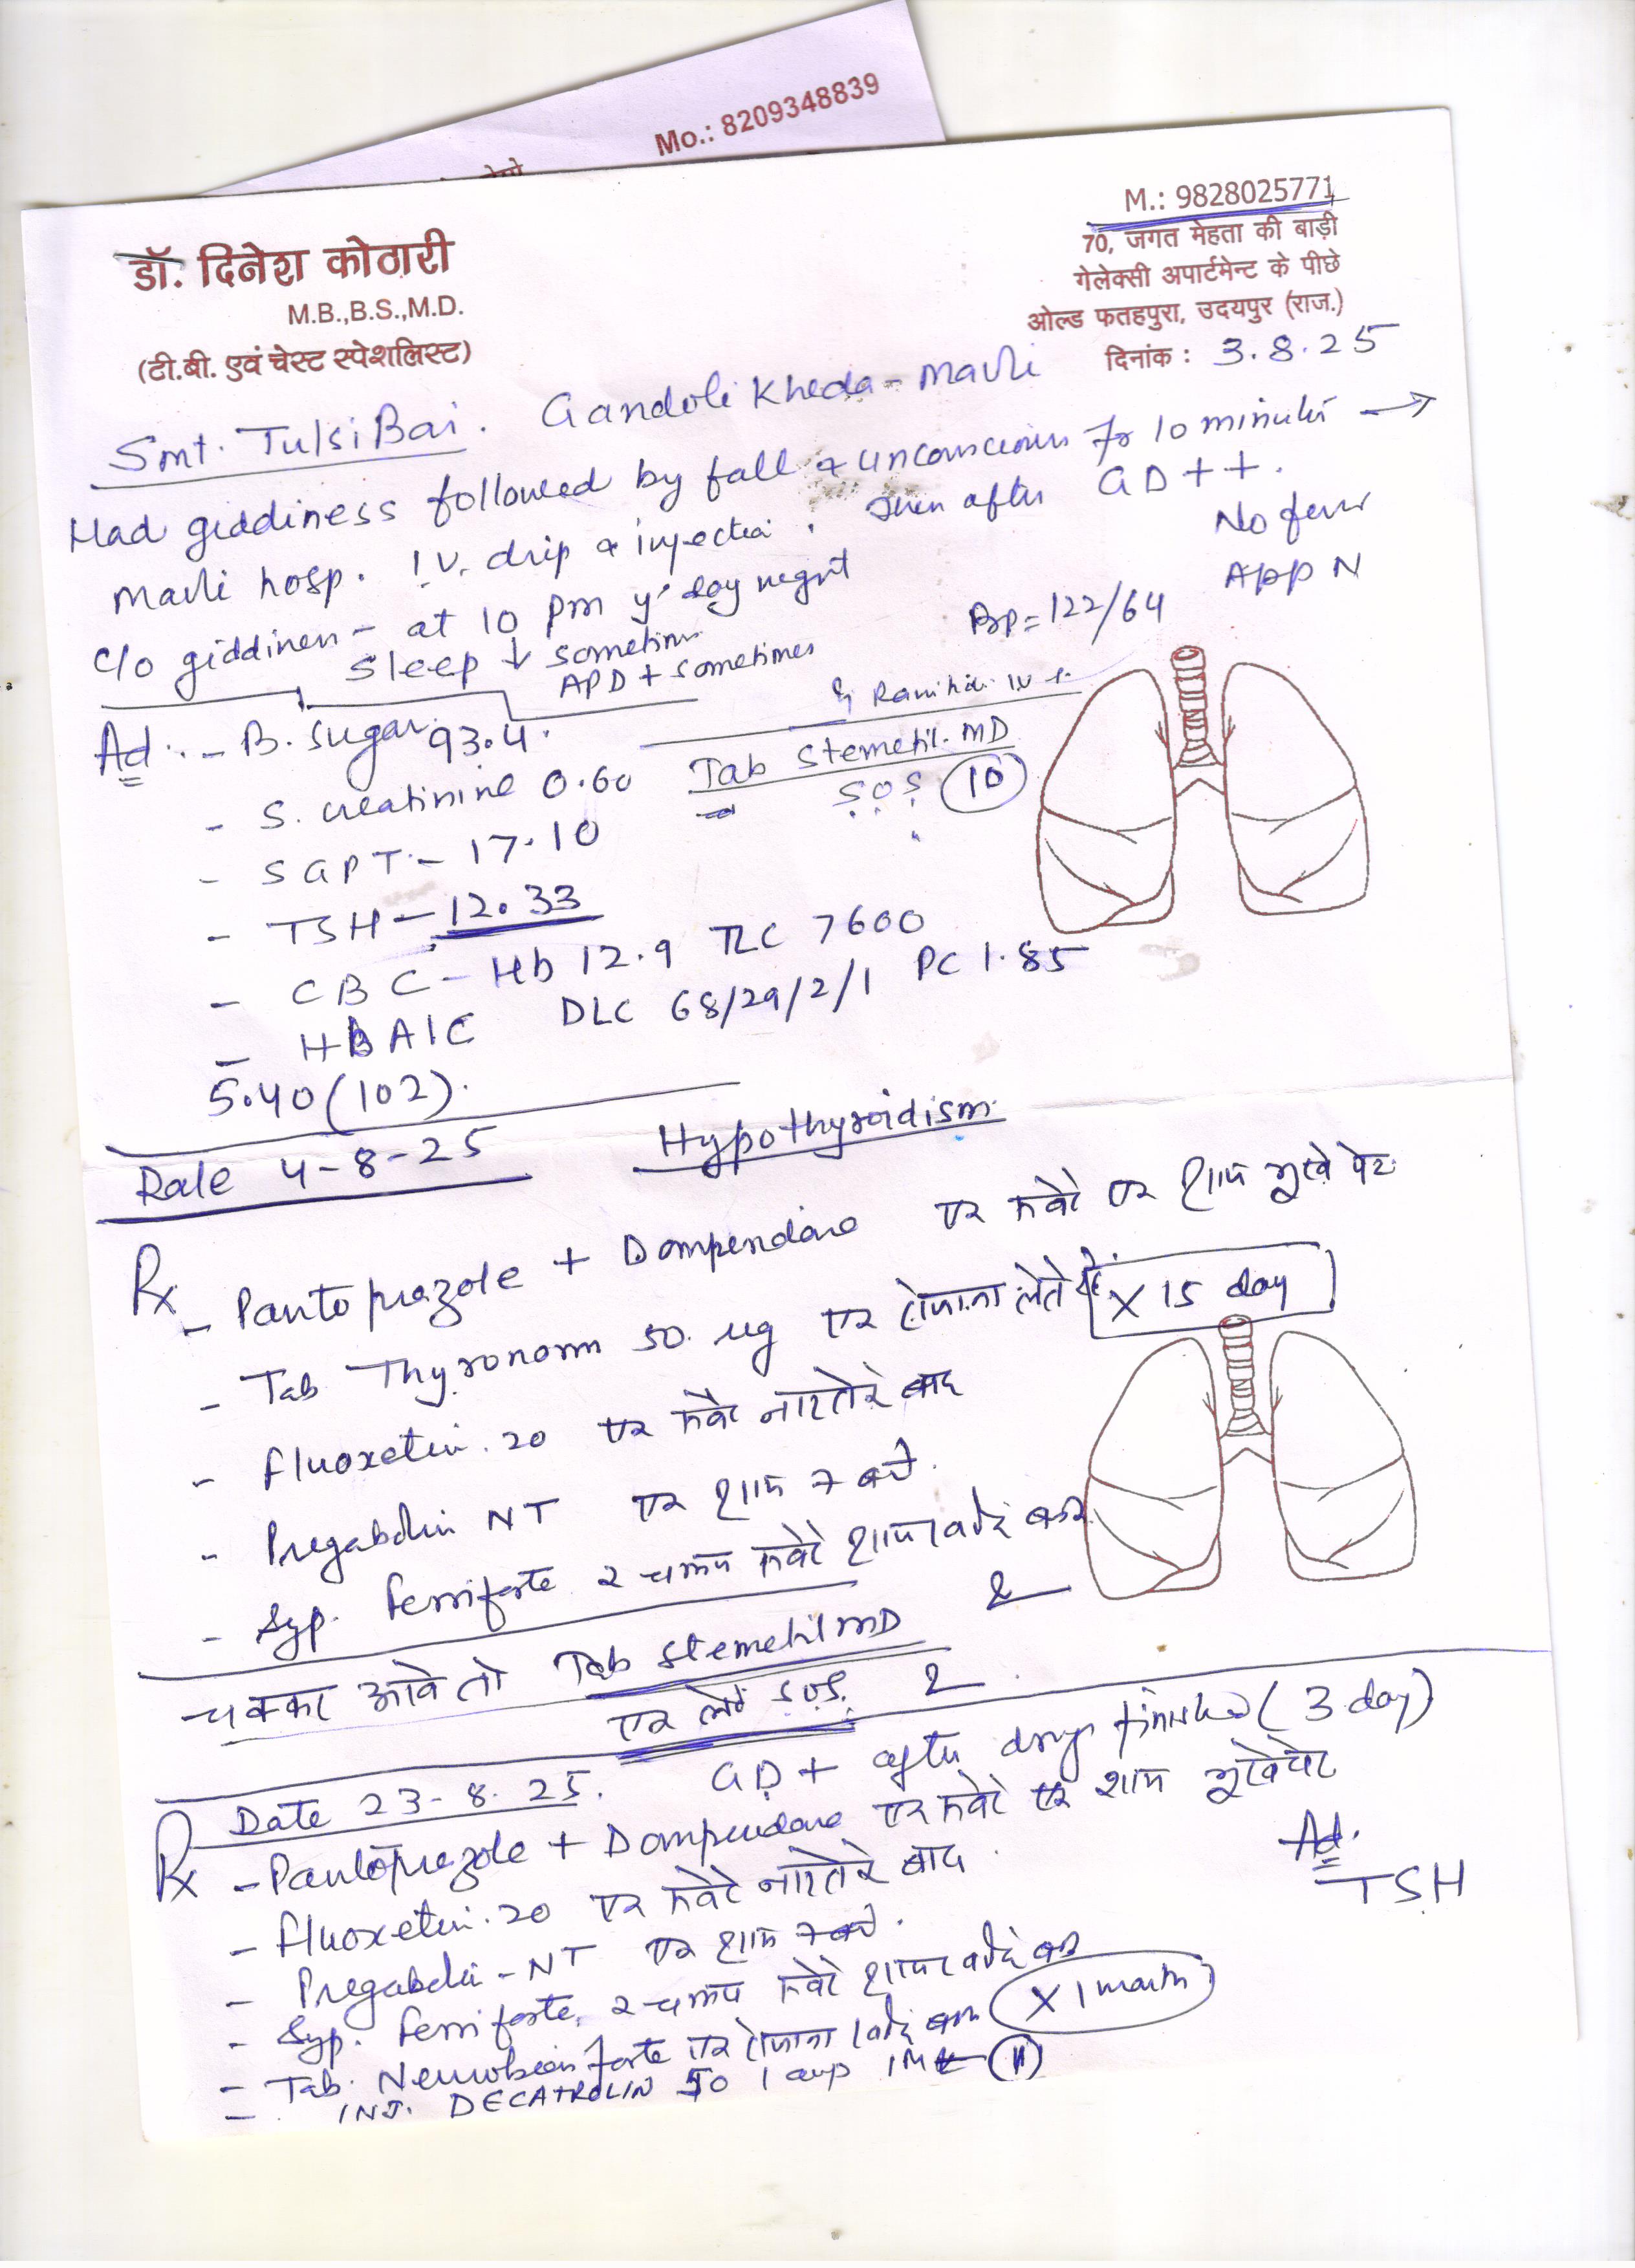 Mo.: 8209348839
M.: 9828025771
डॉ. दिनेश कोठारी
M.B.,B.S.,M.D.
(टी.बी. एवं चेस्ट स्पेशलिस्ट)
70, जगत मेहता की बाड़ी
गेलेक्सी अपार्टमेन्ट के पीछे
ओल्ड फतहपुरा, उदयपुर (राज.)
दिनांक : 3.8.25
Smt. Tulsi Bai. Gandoli Kheda - Mavli
Had giddiness followed by fall & unconscious for 10 minutes →
Mavli hosp. I.V. drip & injection. Then after GD++.
No fever
App N
C/o giddiness - at 10 pm y'day night
BP = 122/64
Sleep ↓ sometimes
APD + sometimes
Ad. - B. Sugar 93.4.
Tab Stemetil MD
SOS (10)
- S. creatinine 0.60
- SGPT - 17.10
- TSH - 12.33
- CBC - Hb 12.9 TLC 7600
DLC 68/29/2/1 PC 1.85
- HbA1C
5.40 (102).
Date 4-8-25 Hypothyroidism
Rx - Pantoprazole + Domperidone एक सवेरे एक शाम भूखे पेट
- Tab Thyronorm 50 ug एक रोजाना लेते रहे. X 15 day
- Fluoxetin. 20 एक सवेरे नाश्ते के बाद
- Pregabalin NT एक शाम 7 बजे.
- Syp. Ferriforte 2 चम्मच सवेरे शाम खाने के बाद
चक्कर आवे तो Tab Stemetil MD
एक लेवें S.O.S.
Date 23-8-25. GD + after drugs finished (3 day)
Rx - Pantoprazole + Domperidone एक सवेरे एक शाम भूखे पेट
Ad.
TSH
- Fluoxetin. 20 एक सवेरे नाश्ते के बाद.
- Pregabalin - NT एक शाम 7 बजे.
- Syp. Ferriforte, 2 चम्मच सवेरे शाम खाने के बाद
X 1 month
- Tab. Neurobion forte एक रोजाना खाने के बाद
- INJ. DECATROLIN 50 1 amp IM